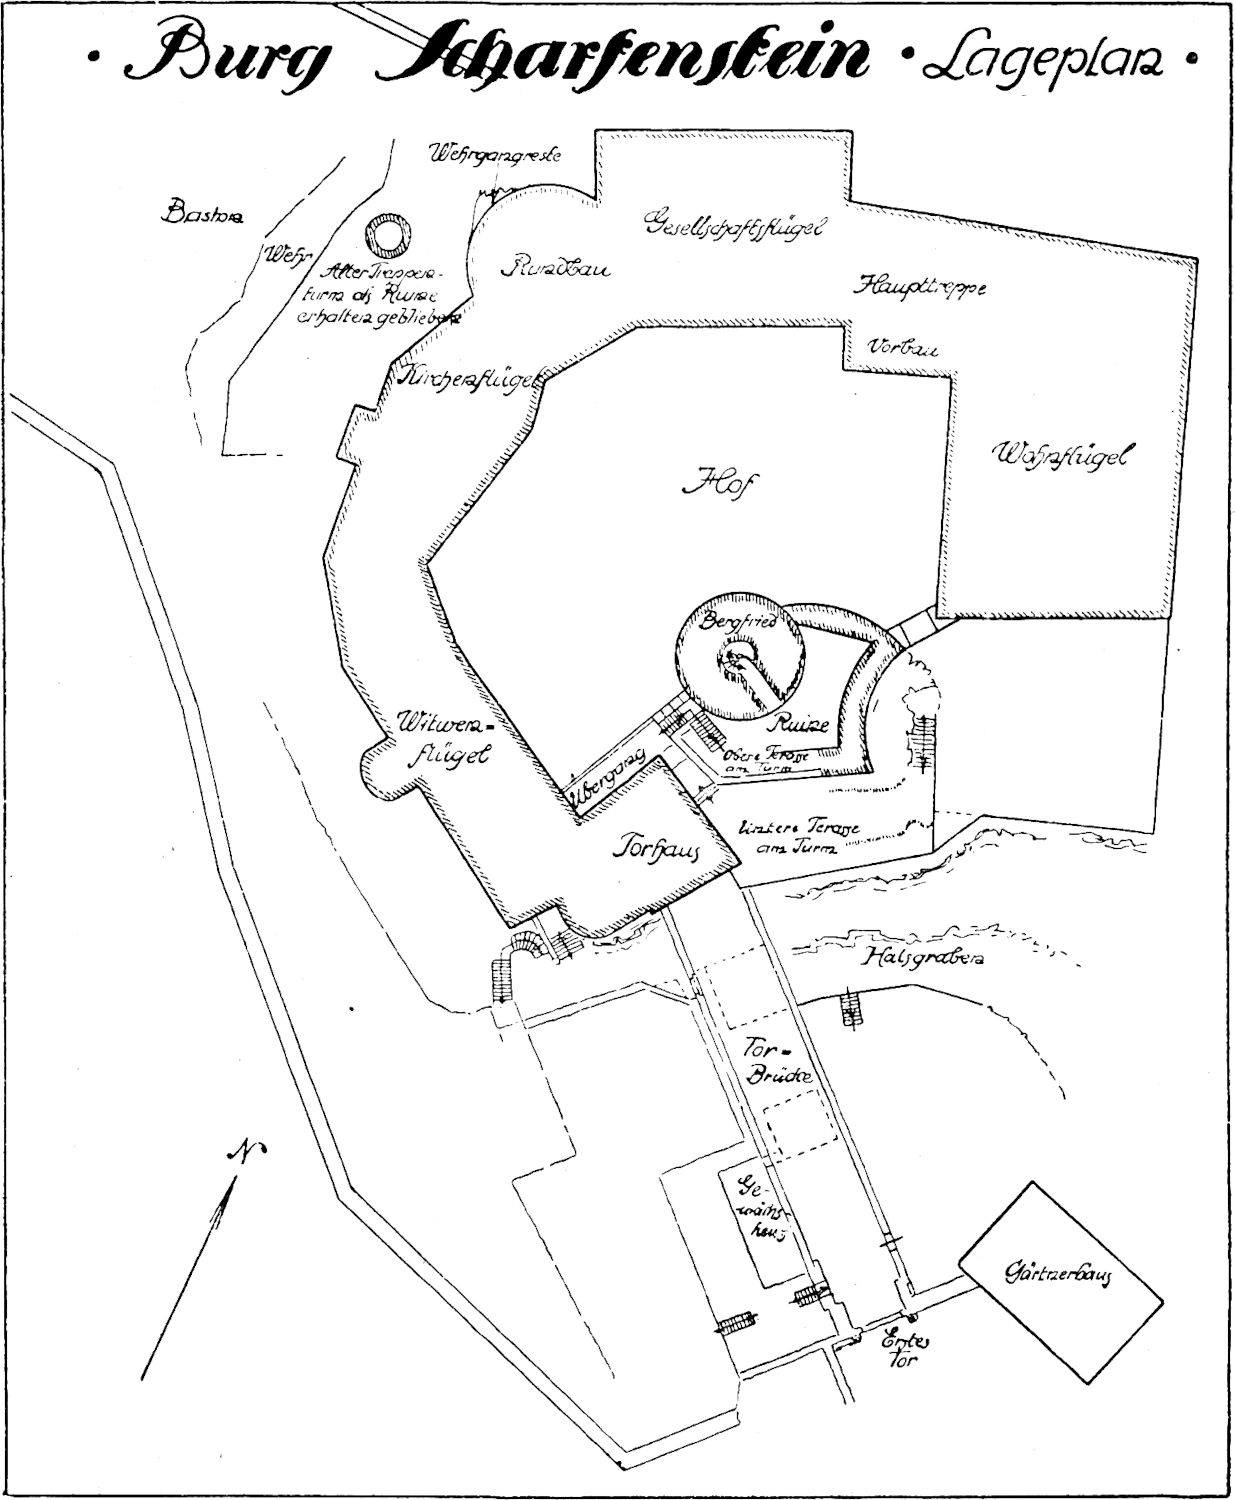 · Burg Scharfenstein · Lageplan ·
Wehrgangreste
Bastion
Wehr
Alter Treppen-
turm als Ruine
erhalten geblieben
Rundbau
Gesellschaftsflügel
Haupttreppe
Vorbau
Kirchenflügel
Wohnflügel
Hof
Bergfried
Witwen=
flügel
Ruine
Übergang
Obere Terasse
am Turm
Torhaus
Untere Terasse
am Turm
Halsgraben
Tor=
Brücke
N
Ge-
wächs-
haus
Gärtnerhaus
Erstes
Tor